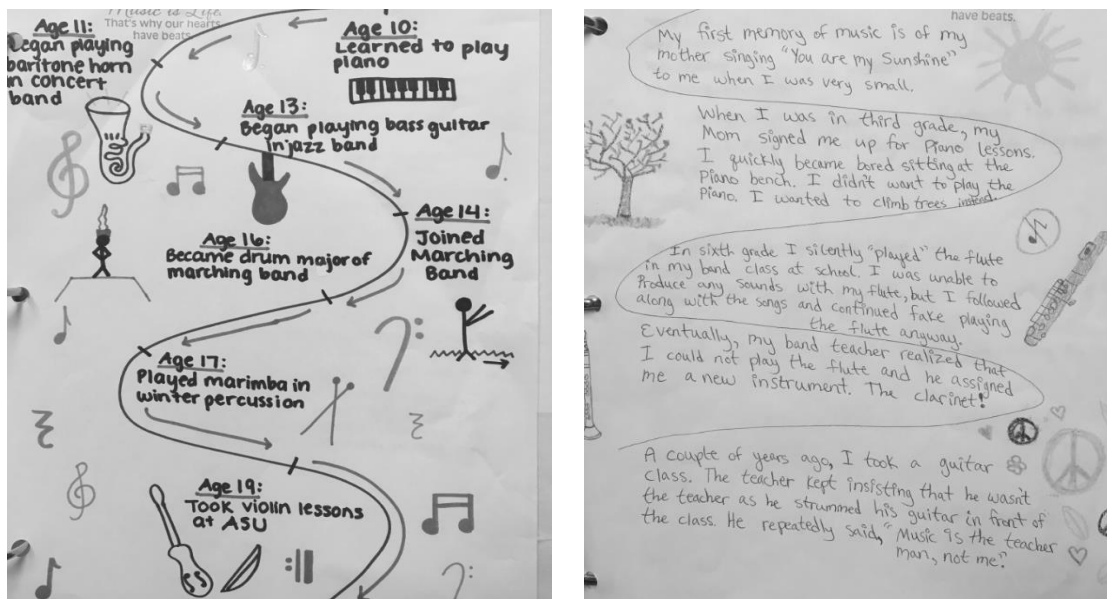 Music is Life.
That's why our hearts
have beats.
Age 10:
Learned to play
piano
Age 11:
Began playing
baritone horn
in concert
band
Age 13:
Began playing bass guitar
in jazz band
Age 14:
Joined
Marching
Band
Age 16:
Became drum major of
marching band
Age 17:
Played marimba in
winter percussion
Age 19:
Took violin lessons
at ASU
have beats.
My first memory of music is of my
mother singing "You are my Sunshine"
to me when I was very small.
When I was in third grade, my
Mom signed me up for Piano lessons.
I quickly became bored sitting at the
Piano bench. I didn't want to play the
Piano. I wanted to climb trees instead.
In sixth grade I silently "played" the flute
in my band class at school. I was unable to
Produce any sounds with my flute, but I followed
along with the songs and continued fake playing
the flute anyway.
Eventually, my band teacher realized that
I could not play the flute and he assigned
me a new instrument. The clarinet!
A couple of years ago, I took a guitar
class. The teacher kept insisting that he wasn't
the teacher as he strummed his guitar in front of
the class. He repeatedly said, "Music is the teacher
man, not me".